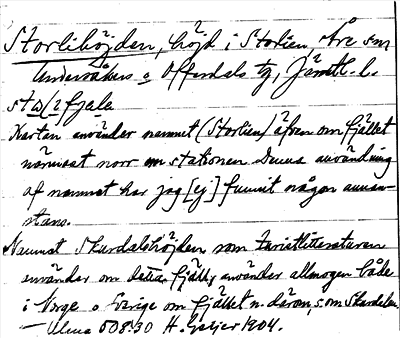 Storlihöjden, höjd i Storlien, Åre sn
Undersåkers o Offerdals tg, Jämtl. l.
Kartan använder namnet (Storlien) äfven om fjället
närmast norr om stationen. Denna användning
af namnet har jag [ej] funnit någon annan-
stans.
Namnet Skurdalshöjden som turistlitteraturen
använder om detta fjäll, använder allmogen både
i Norge o Sverige om fjället n. därom, s. om Skurdalen
— Ulma 508:30 H. Geijer 1904.